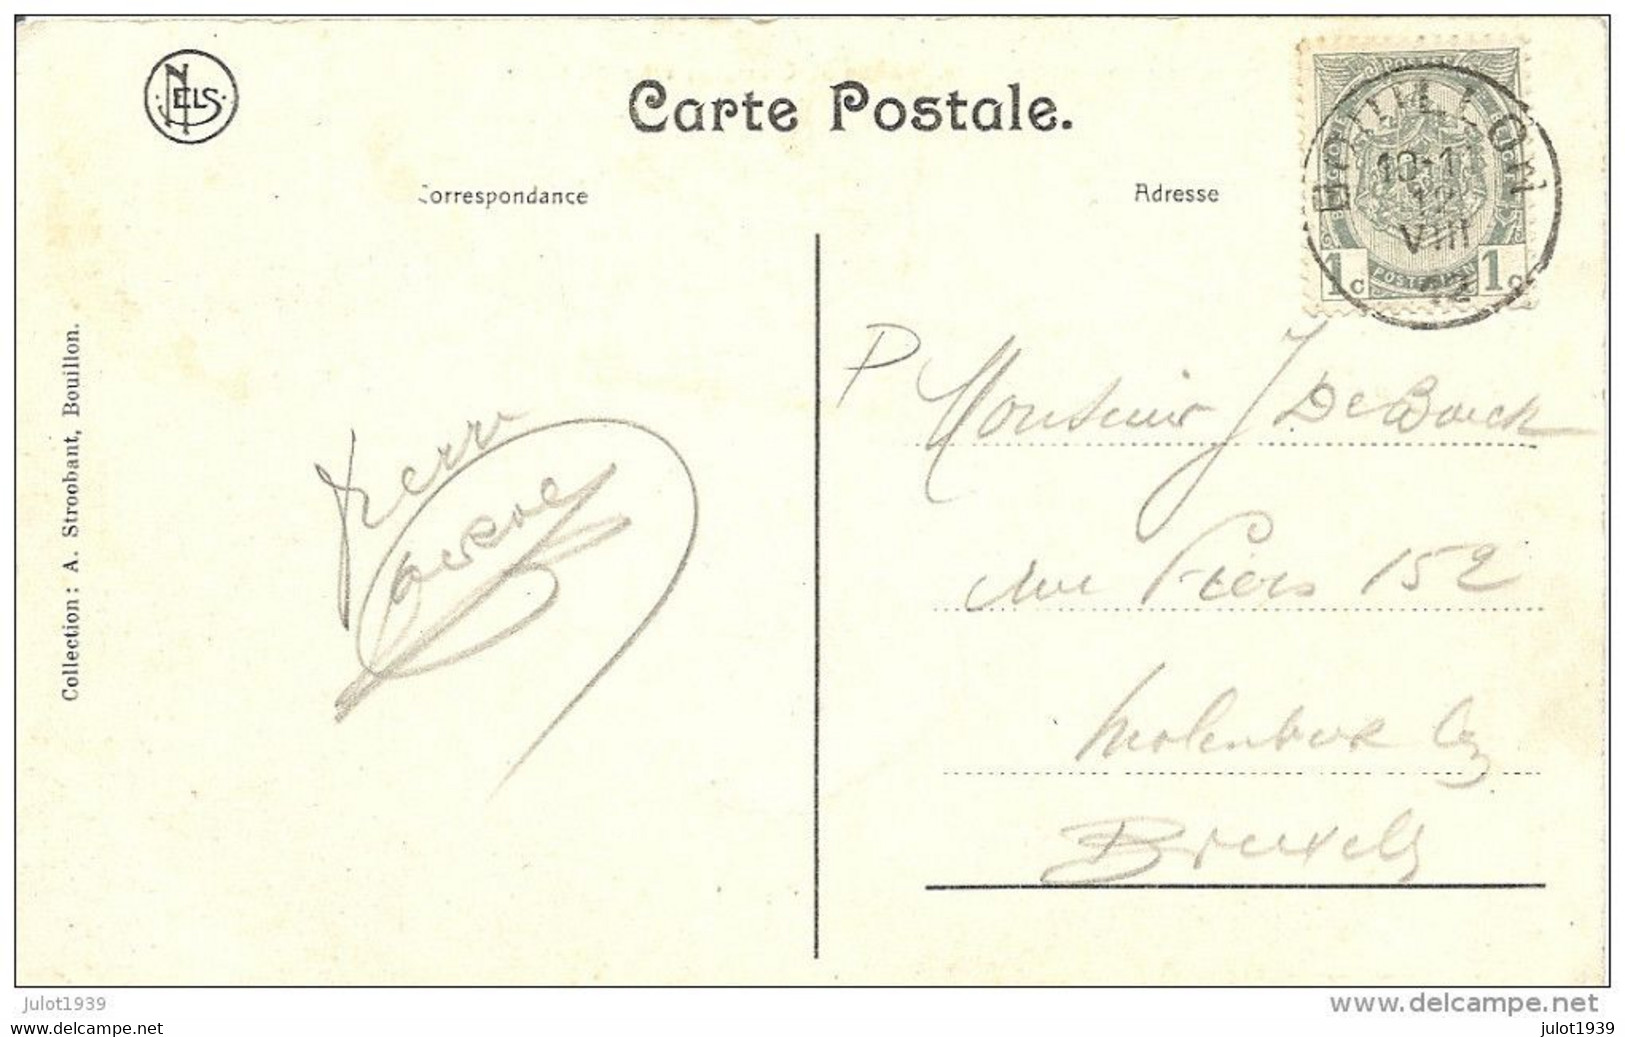 NELS
Carte Postale.
Correspondance
Adresse
BOUILLON
10-1
12
VIII
12
POSTE
1c POSTERIJEN 1c
Collection: A. Stroobant, Bouillon.
P Monsieur J DeBoeck
rue Piers 152
Molenbeek
Bruxelles
Pierre
julot1939
www.delcampe.net
julot1939
julot1939